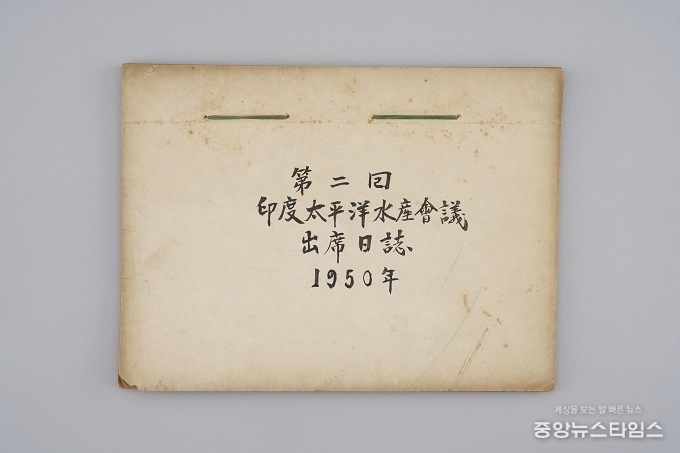 第二回
印度太平洋水産會議
出席日誌
1950年
세상을 보는 발 빠른 뉴스
중앙뉴스타임스